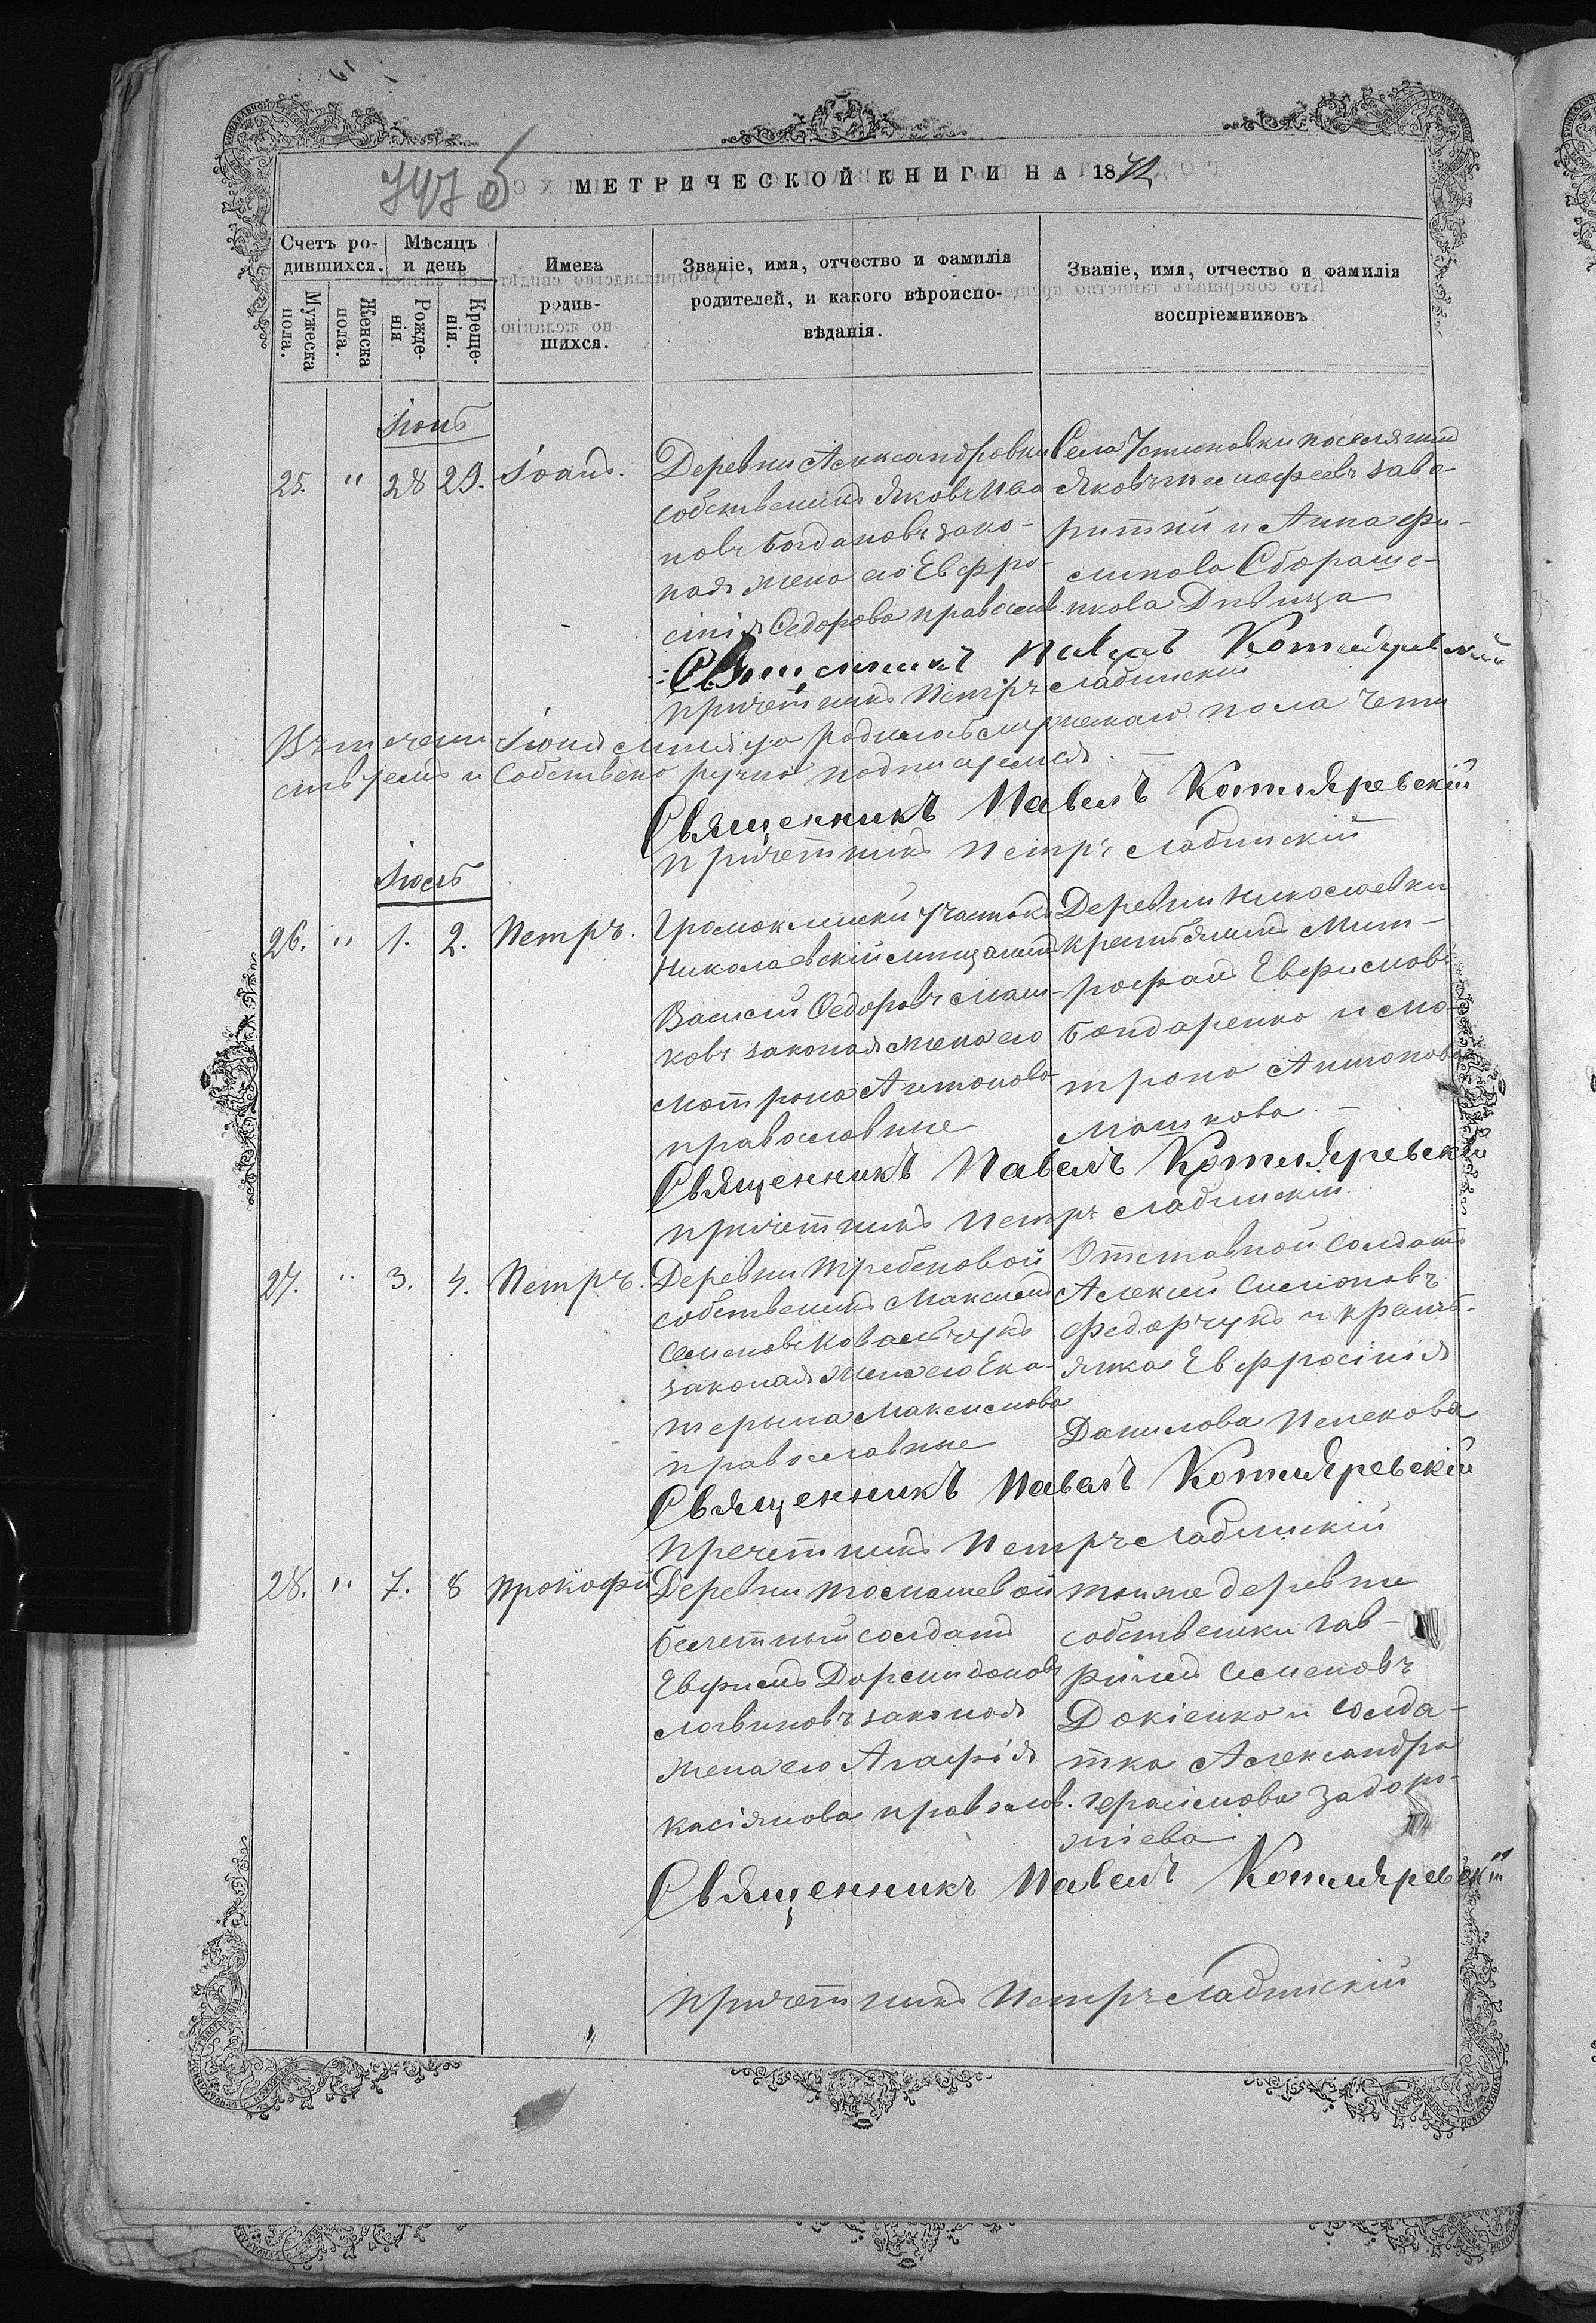 747 б
МЕТРИЧЕСКОЙ КНИГИ НА 1872
Счетъ ро-
дившихся.
Мужеска
пола.
Женска
пола.
Мѣсяцъ
и день
Рожде-
нія
Креще-
нія.
Имена
родив-
шихся.
Званіе, имя, отчество и фамилія
родителей, и какого вѣроиспо-
вѣданія.
Званіе, имя, отчество и фамилія
воспріемниковъ.
Іюнь
25. " 28 29. Іоанъ.
Деревни Александровки
собственикъ Яковъ Ива
новъ Богдановъ зако-
ная жена его Евфро-
сінія Федорова православ.
Села Устиновки поселянинъ
Яковъ
ритній и Анна Фи-
липова
Дѣвица
Священникъ Павелъ Котляревскій
причетникъ Петръ Лабинскій
Въ теченіи Іюня мѣсяца родилось мужескаго пола
и Собствено ручно подписуемся
Священникъ Павелъ Котляревскій
Причетникъ Петръ Лабинскій
Іюль
26. " 1. 2. Петръ.
Громоклейски участокъ
Николаевскій мещанинъ
Василій Федоровъ Маш-
ковъ законая жена его
Мотрона Антонова
православные
Деревни Николаевки
крестьянинъ Мит-
рофанъ Евфимовъ
Бондаренко и Мо-
трона Антонова
Машкова
Священникъ Павелъ Котляревскій
причетникъ Петръ Лабинскій
27. " 3. 4. Петръ.
Деревни Требеновой
собственикъ Максимъ
Семеновъ Ковальчукъ
законая жена его Ека-
терына Максимова
православные
Отставной Солдатъ
Алексий Симоновъ
Федорчукъ и кресть-
янка Евфросінія
Данилова Пенекова
Священникъ Павелъ Котляревскій
Пречетникъ Петръ Лабинскій
28. " 7. 8 Прокофій
Деревни Томашевой
Белетный солдатъ
Евфимъ Дормидоновъ
Логвиновъ законая
жена его Агафія
Касіянова православ.
тоиже деревне
собственики Гав-
рілъ Семеновъ
Докіенко и солда-
тка Александра
Герасімова Задоро-
жнева
Священникъ Павелъ Котляревскій
Причетникъ Петръ Лабинскій